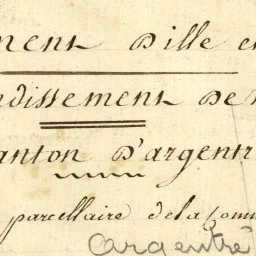 ment Dille e
ndissement De
anton D'argentr
parcellaire de la Comm
argentré